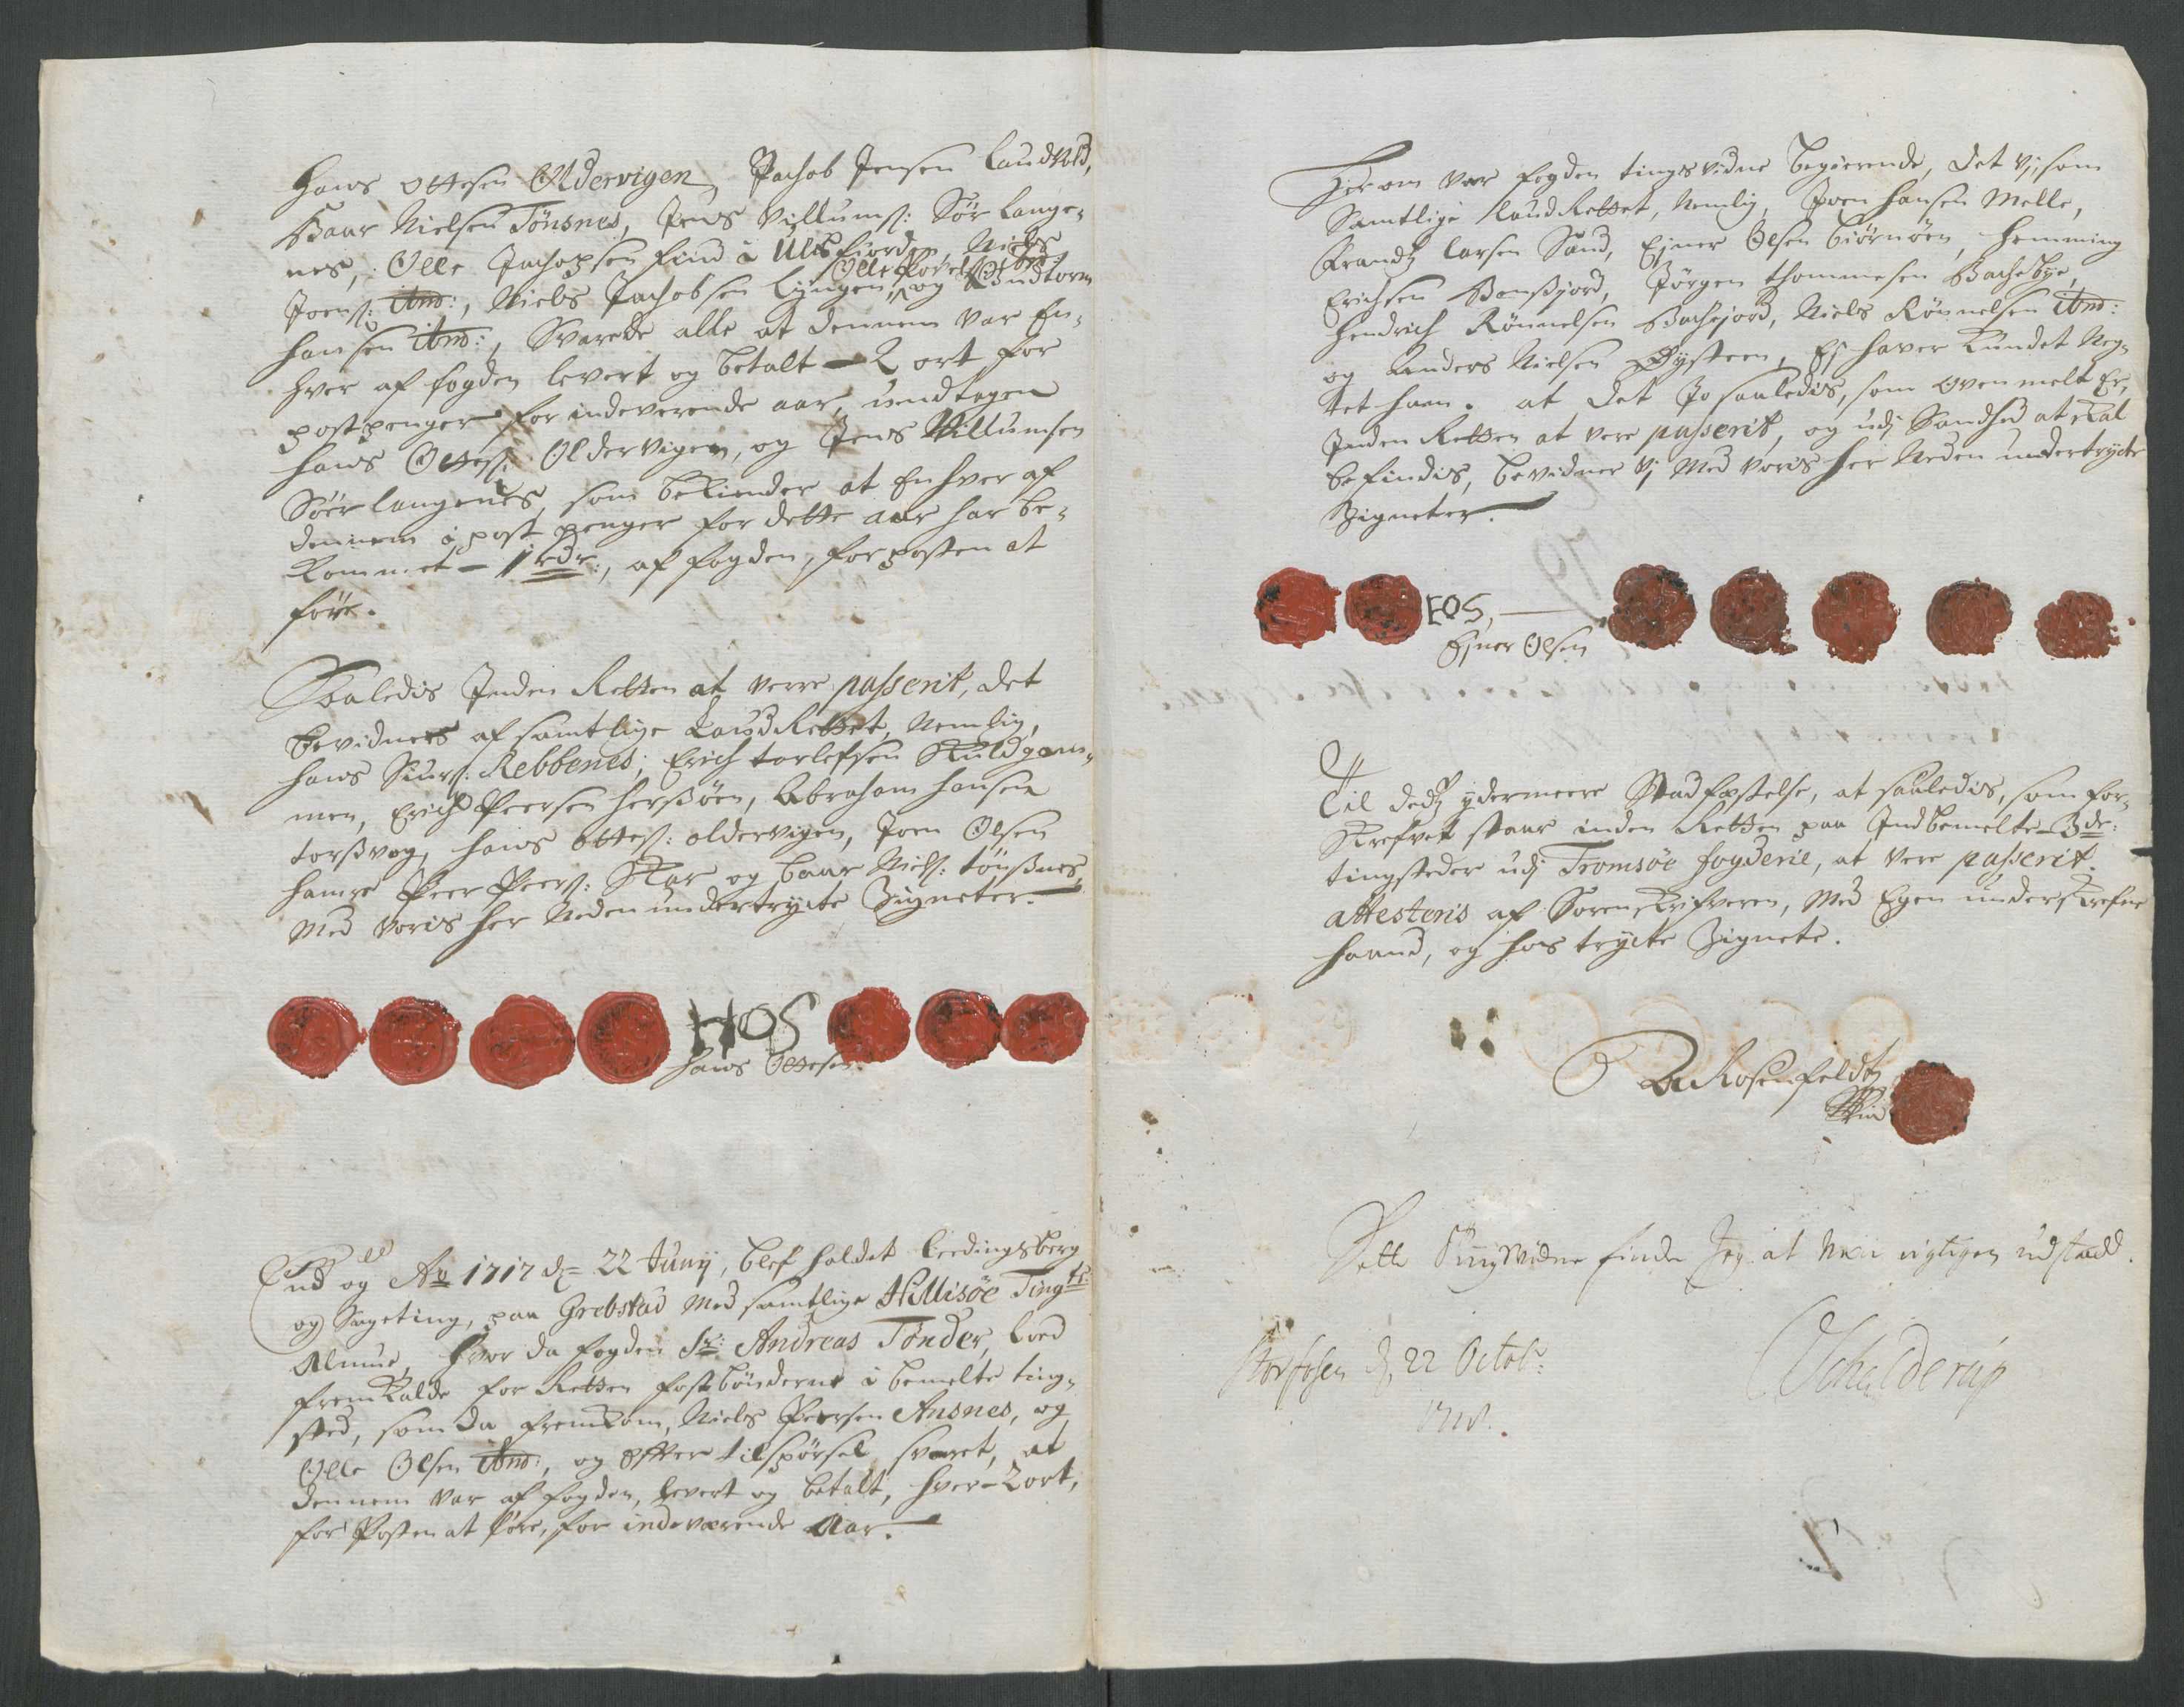 Hans Ottesen Oldervigen, Jachob Jensen Laudvold,
Baar Nielsen Tønsnes, Jens Villumß: Sør Lange-
nes, Olle Jachopsen find i Ulsfiorden, Niels
Joenß: ibm:, Niels Jachobsen Lyngen, Olle Povels: ibd: og Gundtorm
Hansen ibm:, Svarede alle at dennem var En-
hver af fogden levert og betalt - 2 ort for
postpenger for indeverende aar, undtagen
Hans Otteß: Oldervigen, og Jens Willumsen
Søer langenes, som bekiender at Enhver af
dennem i post penger for dette aar har be-
kommet - 1 rdr:, af fogden, for posten at
føre.
Saaledis Inden Retten at verre passerit, det
bevidnes af samtlige LaudRettet, Nemlig,
Hans Siurß: Rebbenes, Erich torlefsen Skuldgam-
men, Erich Peersen Hersøen, Abraham Hansen
torßvog, Hans Otteß: oldervigen, Joen Olsen
Hamre Peer Peerß: Skar og baar Nielß: tønßnes,
Med voris her Neden undertrycte Zigneter.
HOS
Hans Ottesen.
End og Ao 1717 d: 22 Junij, blef holdet Leedingsberg
og Sageting, paa Grebstad Med samtlige Hillisøe Tingst:
Almue, hvor da fogden Sr: Andreas Tønder, loed
fremkalde for Retten postbønderne i bemelte ting-
sted, som da fremkom, Niels Peersen Ansnes, og
Olle Olsen ibm:, og efter tilspørsel svaret, at
dennem var af fogden, levert og betalt, hver - 2 ort,
for Posten at føre, for indeværende Aar.
Herom var fogden tingsvidne begierende, det Vj, som
Samtlige LaudRettet, Nemlig, Joen Hansen Melle,
Frandtz Larsen Sand, Ejner Olsen biørnøen, Hemming
Erichsen Bensjord, Jørgen Thommesen Bachebye,
Hendrich Rønnelsen Bachejord, Niels Rønnelsen ibm:
og Anders Nielsen Øysteen, Ej haver kundet Neg-
tet ham. at det Jo saaledis, som oven melt Er,
Inden Retten at vere passerit, og udj Sandhed at skal
befindis, bevidner Vj Med voris her Neden undertrycte
Zigneter.
EOS,
Ejner Olsen
Til dedtz ydermeere Stadfæstelse, at saaledis, som for-
skrefvet staar inden Retten paa Indbemelte 3de:
tingsteder udj Tromsøe fogderie, at vere passerit.
attesteris af Sorenskrifveren, Med Egen underskrefne
haand, og hos trycte Zignete.
Rosenfeldtz
Dette Tingsvidne finder Jeg at være rigtigen udstædd.
Storfosen d: 22 Octobr:
1718.
Schielderup